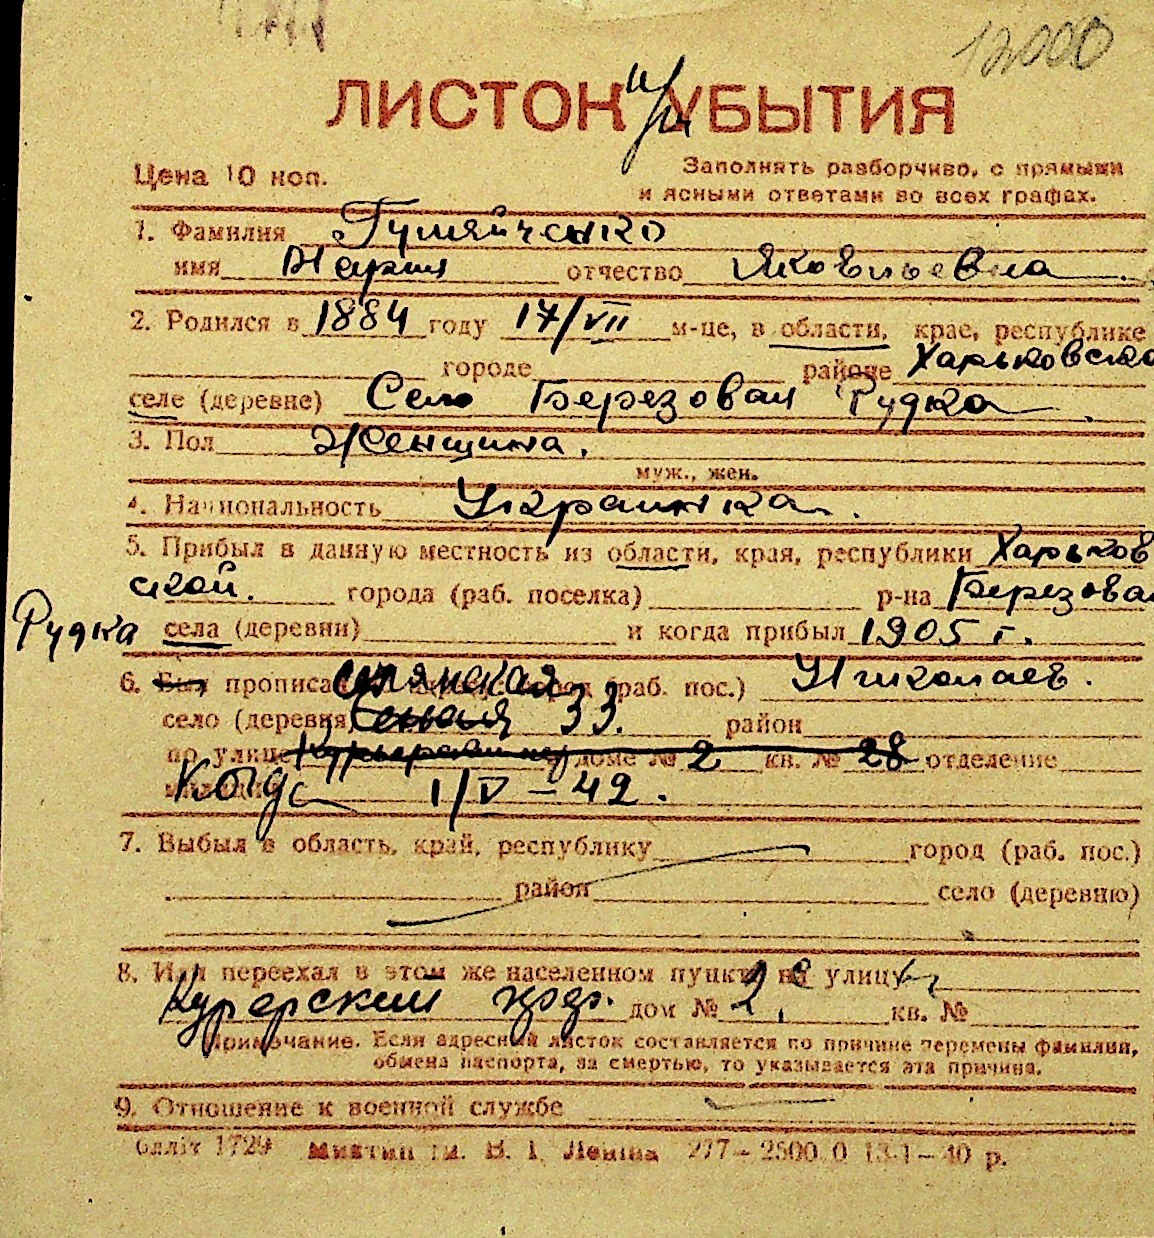 12000
ЛИСТОК УБЫТИЯ
Цена 10 коп. Заполнять разборчиво, с прямыми
и ясными ответами во всех графах.
1. Фамилия
имя Мария отчество Яковлевна
2. Родился в 1884 году 17/VII м-це, в области, крае, республике
городе районе Харьковско
селе (деревне) Село Березовая Рудка
3. Пол Женщина.
муж., жен.
4. Национальность Украинка.
5. Прибыл в данную местность из области, края, республики Харьков
ской. города (раб. поселка) р-на Березовая
Рудка села (деревни) и когда прибыл 1905 г.
6. Был прописан город (раб. пос.) Николаев.
село (деревня) 33. район
по улице доме № 2 кв. № 28 отделение
Когда 1/V-42.
7. Выбыл в область, край, республику город (раб. пос.)
район село (деревню)
8. Или переехал в этом же населенном пункте на улицу
дом № 2, кв. №
Примечание. Если адресный листок составляется по причине перемены фамилии,
обмена паспорта, за смертью, то указывается эта причина.
9. Отношение к военной службе
блліт 1729 ім. В. І. Леніна 277-2500.0 13-1-40 р.